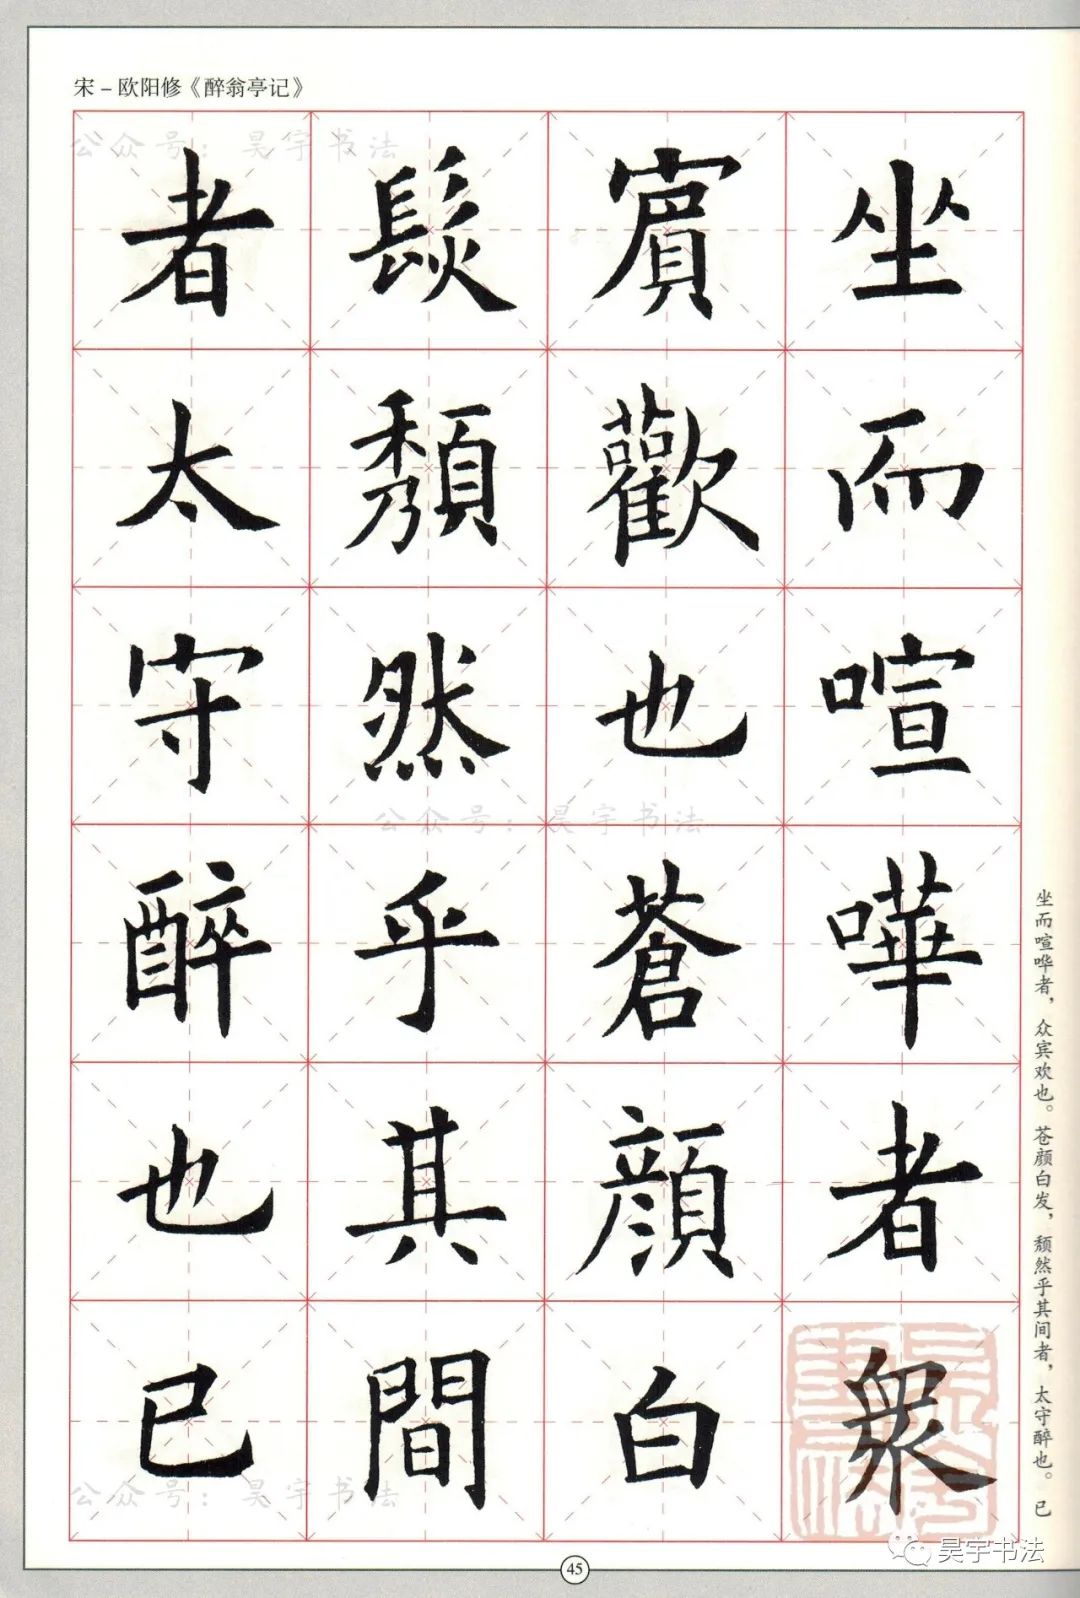 宋－欧阳修《醉翁亭记》
坐而喧嘩者衆
賓歡也蒼顔白
髮頹然乎其間
者太守醉也已
坐而喧哗者，众宾欢也。苍颜白发，颓然乎其间者，太守醉也。已
公众号：昊宇书法
公众号：昊宇书法
公众号：昊宇书法
昊宇书法
45